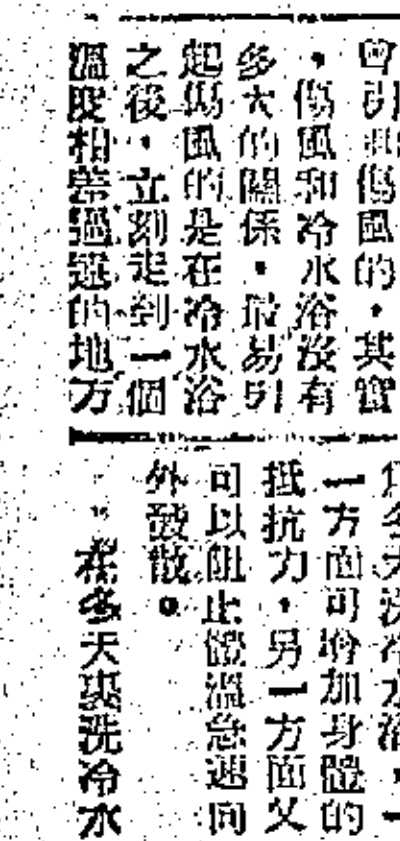 會引起傷風的，其實
，傷風和冷水浴沒有
多大的關係，最易引
起傷風的是在冷水浴
之後，立刻走到一個
溫度相差過遠的地方
冬天洗冷水浴，一
一方面可增加身體的
抵抗力，另一方面又
可以阻止體溫急速向
外發散。
在冬天裏洗冷水